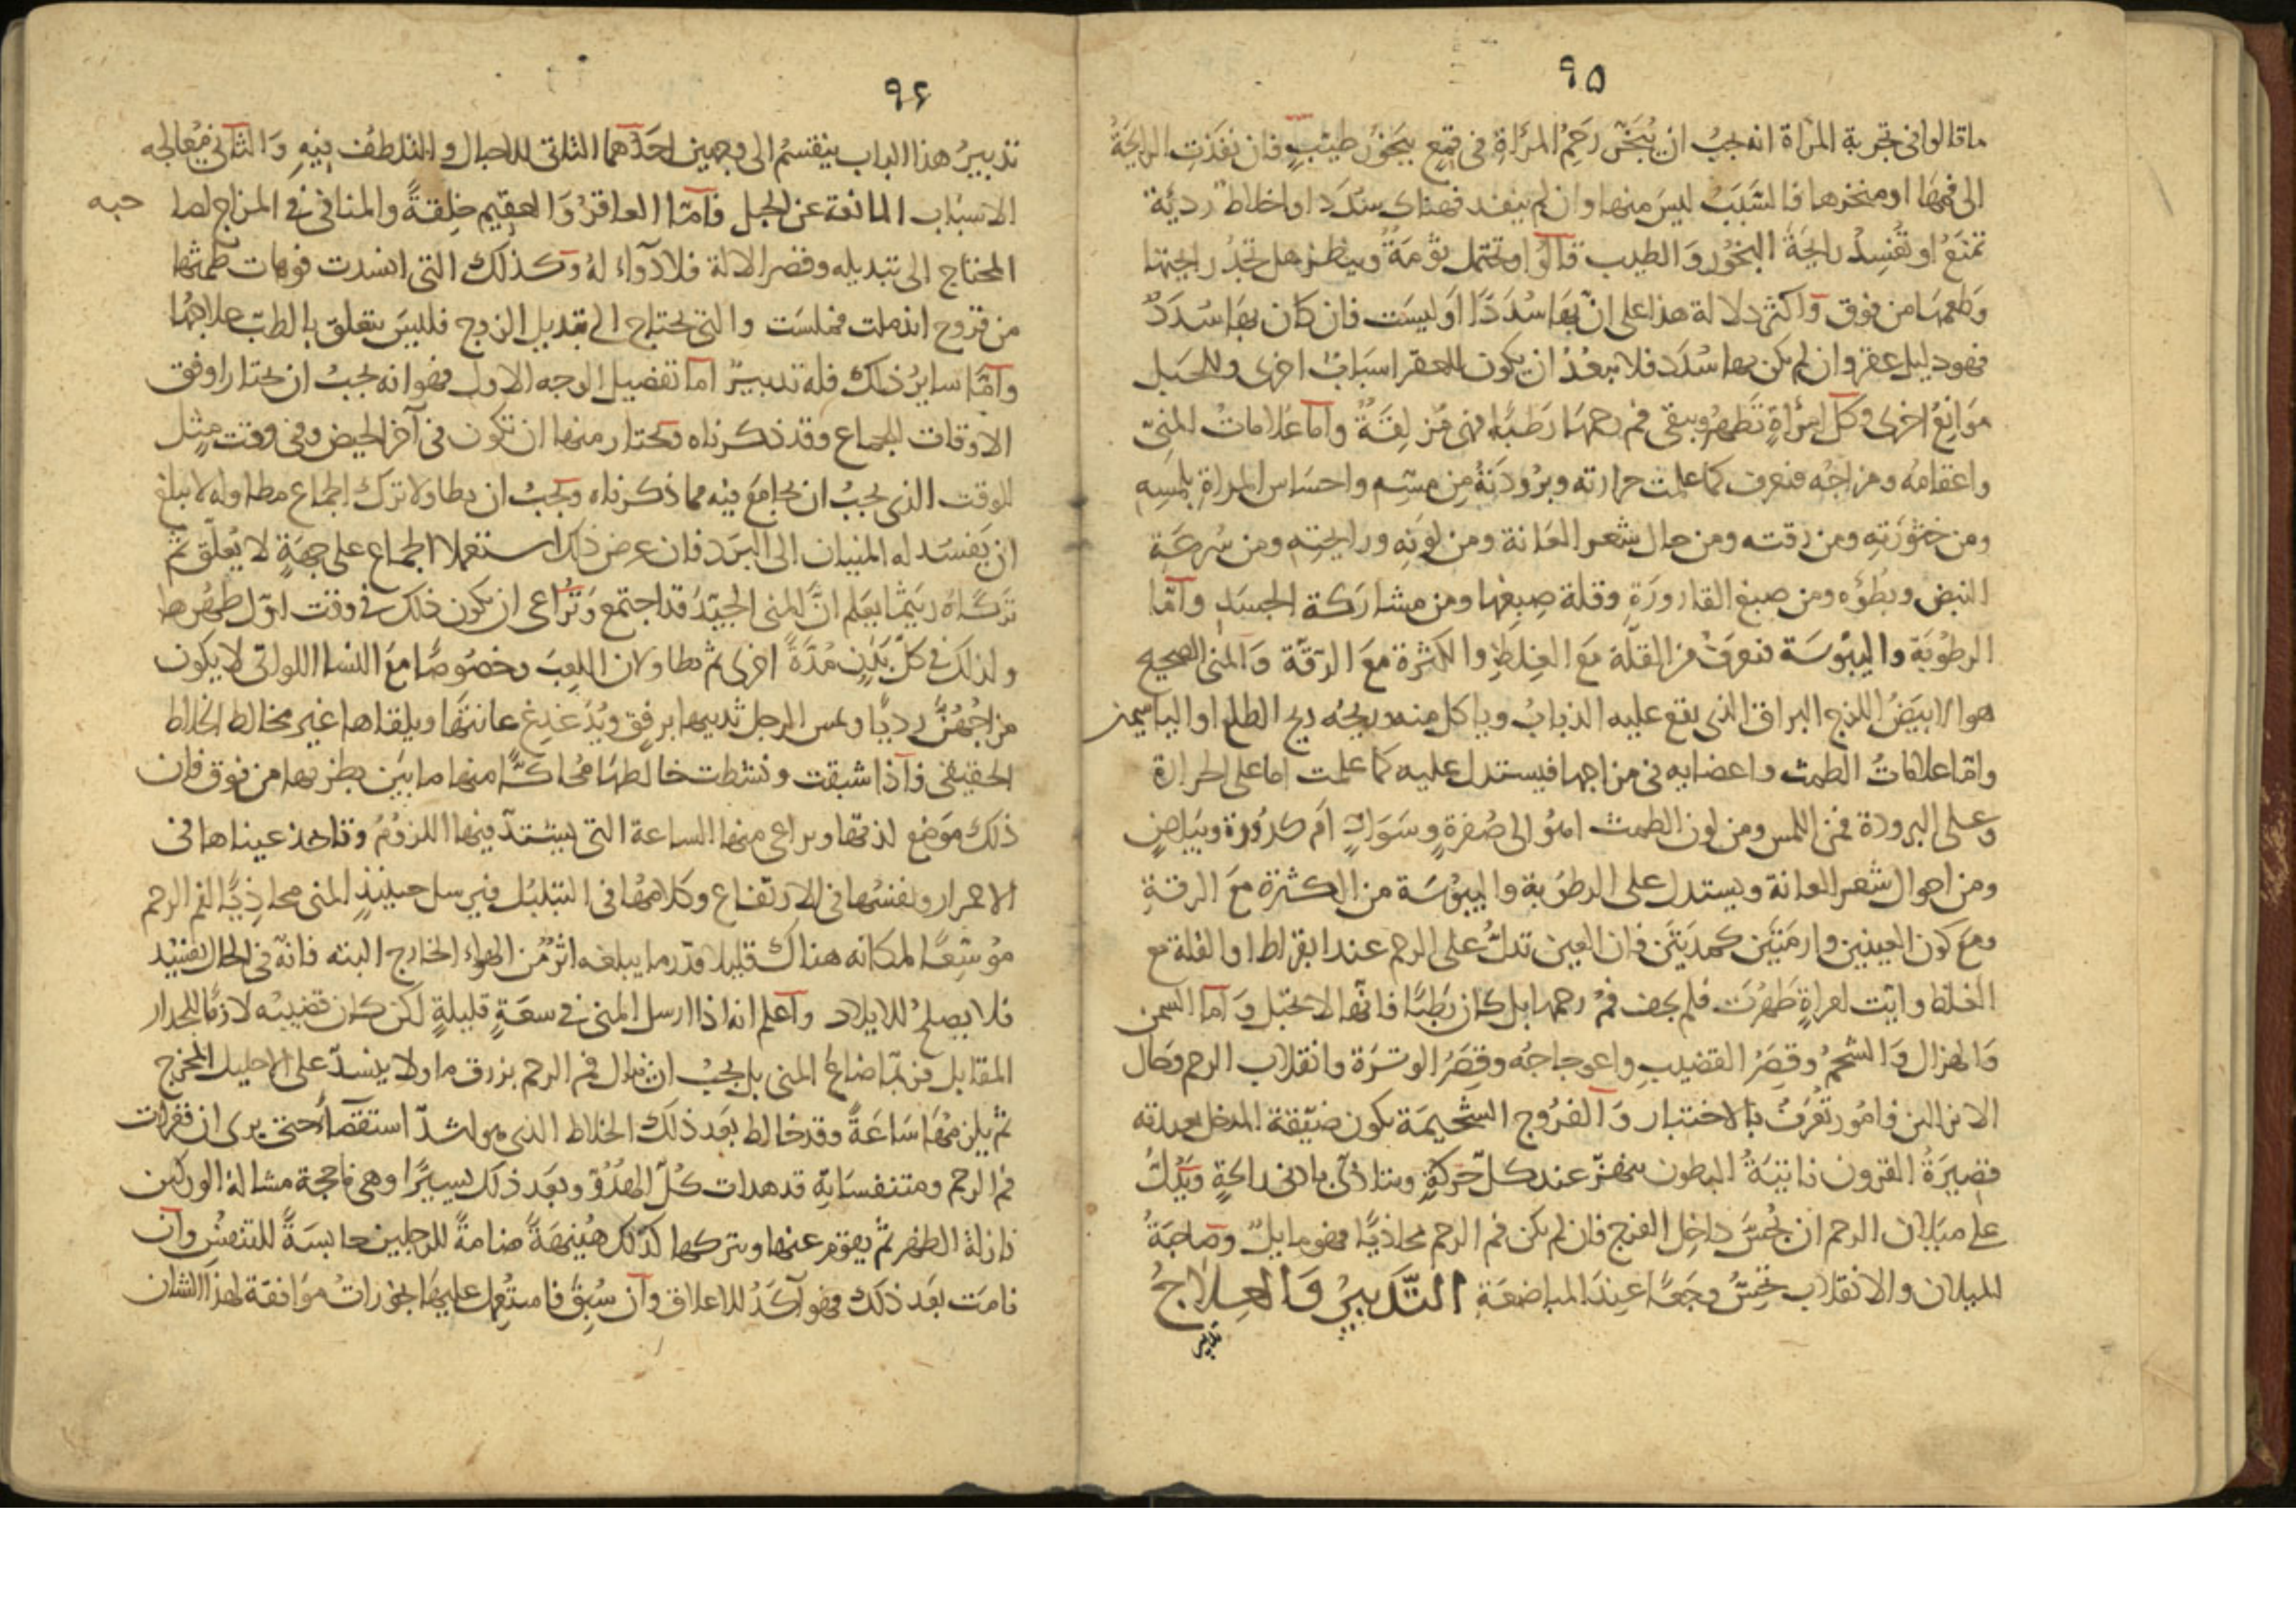 ٩٥
ما قالوا فى تجربة المرأة انه يجبُ ان يُبخّر رَحِمُ المرَأةِ فى قمِع ببَخوُر طيّبٍ فان نفَذتِ الرايحَةُ
الى فمِهَا او منخرها فالسَّبَبُ ليسَ منها وان لم ينفد فهناك سُدَد او اخلاط رديّة
تمنَعُ او تُفسِدُ رايحَةَ البخُور وَالطيب قالُوا وتحتمل ثومَةً وينظر هل تجدُ رايحتها
وَطعمهَا من فوق وَاكثر دلالة هذا على انّ بهَا سُدَدًا اوَ ليسَت فان كان بهَا سُدَدٌ
فهو دليل عقر وان لم يكن بها سُدَد فلا يبعُدُ ان يكون للعقر اسبَابٌ اخرى وللحَبَل
مَوَانِعُ اخرى وكل امرَأةٍ تَطهرُ ويبقى فم رحمهَا رَطبًا فهى مُزلِقَةٌ وامّا عَلامَاتُ المنىّ
واعضاؤه ومزاجُه فتعرف كما علمت حرارته وبرُودتهُ من مسّه واحسَاس المرأةِ بلمسِه
ومن خثورَتِه ومن رقته ومن حال شعر العَانة ومن لونِه ورايحتِه ومن سُرعَةِ
النبض وبُطؤه ومن صبغ القارورَةِ وقلة صبغِها ومن مشاركة الجسَدِ وامّا
الرطوُبَة واليبُوسَة فتعرَفُ من القلّة مَعَ الغِلظِ والكثرة مَعَ الرّقّة وَالمنى الصحيح
هو الابيَضُ اللزج البراق الذى يقع عليه الذبابُ وياكل منه وريحُه ريح الطلع او الياسمين
وامّا علامَاتُ الطمث واعضايه فى مزاجها فيستدل عليه كما علمت اما على الحرارة
وَعلى البرودة فمن اللمس ومن لون الطمث اهوُ الى صُفرةٍ وسَوَادٍ ام كدُورة وبَيَاضٍ
ومن احوال شعر العانة ويستدل على الرطوُبة واليبُوسَة من الكثرة مَعَ الرقةِ
ومَعَ كون العينين وارمَتيَن كمدَيتَن فان العين تدلُّ على الرحم عند ابقراط او القلة مع
الغلظ وايّت امراةٍ طَهُرت فلم يجف فمُ رحمها بل كان رَطبًا فانّها لا تحبَل وَامّا السمن
وَالهزال وَالشحمُ وقِصَرُ القضيبِ واعوجاجُه وقِصَرُ الوتَرَة وانقلاب الرحم وحَال
الانزالين فامُور تُعرَفُ بالاختبار وَالفرُوج الشّحيمَة يكون ضيّقة المدخل بعيدته
قصِيَرةُ القرون ناتيَةُ البطون تنهزّ عند كلّ حَركةٍ وتتاذّى بادنى رايحةٍ وَيَدُلُّ
على ميَلان الرحم ان يُحسَّ داخِل الفرج فان لم يكن فم الرحم محاذيًا فهو مايلٌ وصَاحبَةُ
الميلان والانقلاب تحِسُّ وجَعًا عِندَ المباضعَةِ التّدبيرُ وَالعِلاجُ
تدبير
٩٦
تدبيرُ هذا الباب ينقسمُ الى وجهين احَدُهما التلاقى للاحبال والتلطف فِيهِ وَالثانى مُعَالجه
الاسبَاب المانعة عن الحبل فامّا العاقرُ وَالعقيم خِلقةً والمنافى فى المزاج لصا حبه
المحتاج الى تبديله وقصر الالة فلا دَوآء لهُ وكذلك التى انسدت فوهات طمثها
من قروح اندملت فملسَت والتى تحتاج الى تبديل الزوج فليسَ يتعلق بالطبّ علاجهُا
وَامّا سايرُ ذلك فله تدبيرٌ امّا تفصيل الوجه الاول فهو انه يجبُ ان يختار اوفق
الاوقات للجماع وقد ذكرناه ويختار منها ان تكون فى آخر الحيض وفى وقت مِثِل
الوقت الذى يجبُ ان يجامَعَ فيه مما ذكرناه ويجبُ ان يطاولا ترك الجماع مطاوله لا يبلغ
ان يَفسَد له المنيان الى البرَد فان عرض ذلك استعملا الجماع على جهَةٍ لا يُعلّق ثم
تركاهُ ريثما يعلم انّ المنى الجيّدُ قد اجتمع وَيُراعى ان يكون ذلك فى وقت اوّل طهُرها
ولذلك فى كلّ بَدَنٍ مُدّةً اخرى ثم يطاولان اللعِبَ وخصوصًا مَعَ النسا اللواتى لا يكون
مزاجهُنَّ رديًّا ويمس الرجل ثدييها برفقٍ ويُدَغدِغ عانتهَا ويلقاها غير مخالط الخلاط
الحقيقى فآذا شبقت ونشطت خالطهَا مُحاكًّا منها ما بيَن بظرها من فوق فان
ذلك موَضع لذتها ويراعى منها الساعة التى يشتدّ فيها اللزوُمُ وتاخذ عيناها فى
الاحمرار ونفسُها فى الارتفاع وكلامهُا فى التبلبُل فيرسل حينيذٍ المنى محاذِيًا لفم الرحم
مُوسّعًا لمكانه هناك قليلا قدر ما يبلغه اثرٌ من الهواء الخارج البته فانّه فى الحال يفسُد
فلا يصلحُ للايلاد واعلم انه اذا ارسل المنى فى سعَةٍ قليلةٍ لكن كان قضيبُه لازمًا للجدار
المقابل فربّما ضاع المنى بل يجبُ ان ينال فم الرحم بزرق ما ولا ينسدّ على الاحليل المخرج
ثم يلزمهَا سَاعَةً وقد خالط بعَد ذلك الخلاط الذى هو اشدّ استقصاءً حتى يرى ان فغرات
فم الرحم ومتنفسَاتِه قد هدات كُلّ الهدُوّ وبعَد ذلك يسيرًا وهى فاحجة مشالة الوركين
نازلة الظهر ثم يقوم عنها ويتركها كذلك هُنيهَةً ضامةً للرجلين حابسَةً للتنفسِ وان
نامَت بعَد ذلك فهو آكدُ للاعلاق وان سُبِقَ فاستُعمِل عليهَا بخورَاتُ موَافقة لهذا الشان